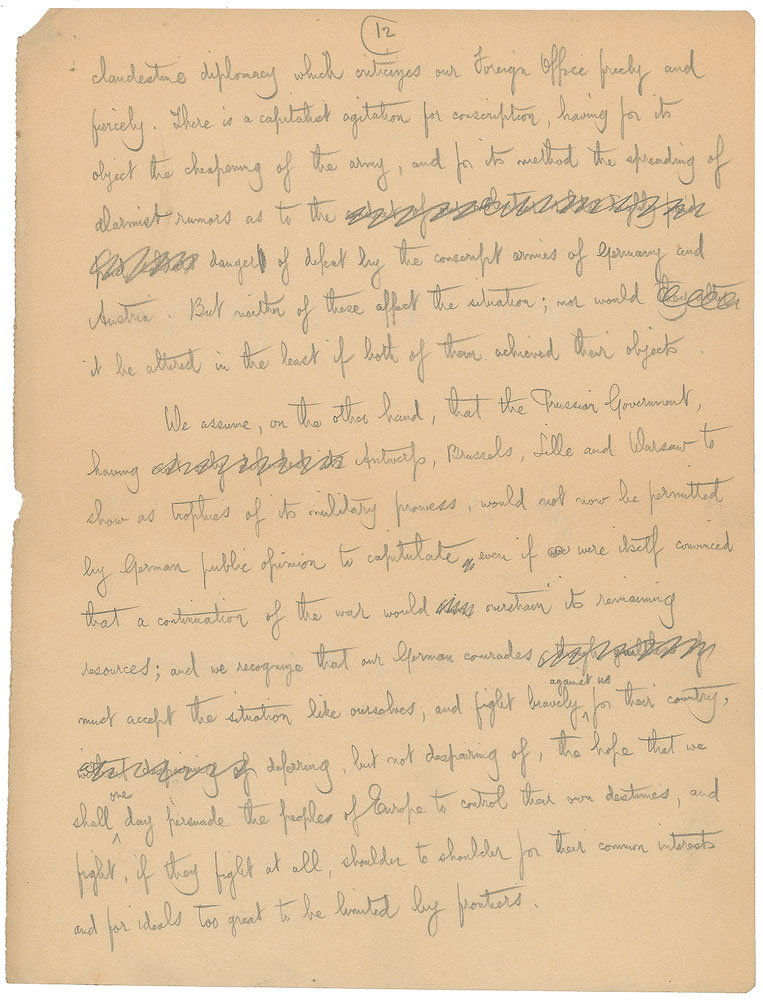 12
clandestine diplomacy which criticizes our Foreign Office freely and
fiercely. There is a capitalist agitation for conscription, having for its
object the cheapening of the army, and for its method the spreading of
alarmist rumors as to the
danger of defeat by the conscript armies of Germany and
Austria. But neither of these affect the situation; nor would
it be altered in the least if both of them achieved their objects.
We assume, on the other hand, that the Prussian Government,
having Antwerp, Brussels, Lille and Warsaw to
show as trophies of its military prowess, would not now be permitted
by German public opinion to capitulate, even if were itself convinced
that a continuation of the war would overstrain its remaining
resources; and we recognize that our German comrades
against us
must accept the situation like ourselves, and fight bravely for their country,
deferring, but not despairing of, the hope that we
one
shall day persuade the peoples of Europe to control their own destinies, and
fight, if they fight at all, shoulder to shoulder for their common interests
and for ideals too great to be limited by frontiers.